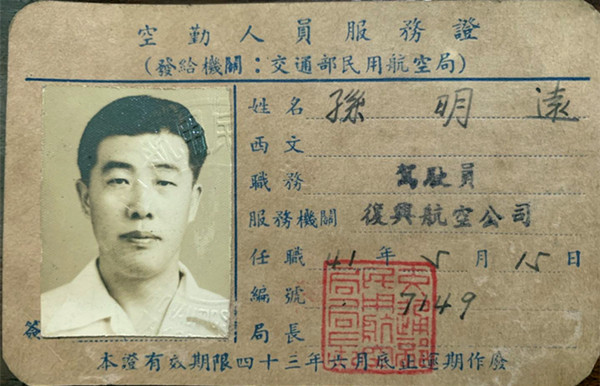 空勤人員服務證
(發給機關：交通部民用航空局)
姓名 孫明遠
西文
職務 駕駛員
服務機關 復興航空公司
任職 41年5月15日
編號 7149
局長
本證有效期限四十三年六月底止逾期作廢